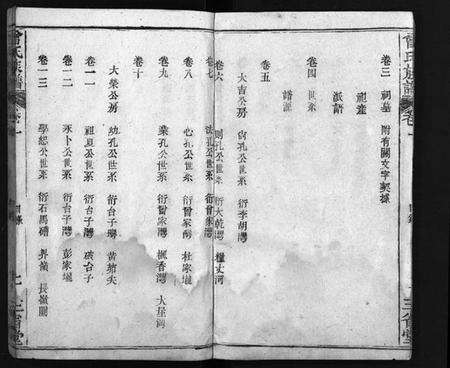 曾氏族譜 卷一
三省堂
卷三 祠墓 附有關文字契據
祀產
派語
卷四 世系
譜派
卷五
大吉公房 尚孔公世系 衍李胡灣
卷六 則孔公世系 衍大乾灣 檀丈河
卷七 孔公世系 衍曾家灣
卷八 心孔公世系 衍曾家灣 杜家壠
卷九 業孔公世系 衍曾家灣 楓香灣 大屋灣
卷十
大榮公房 幼孔公世系 衍台子灣 黃荊夫
卷一一 祖亘公世系 衍台子灣 破台子
卷一二 永卜公世系 衍台子灣 彭家壠
卷一三 學恕公世系 衍石馬磧 界嶺 長嶺團
曾氏族譜 卷一 目錄 七 三省堂